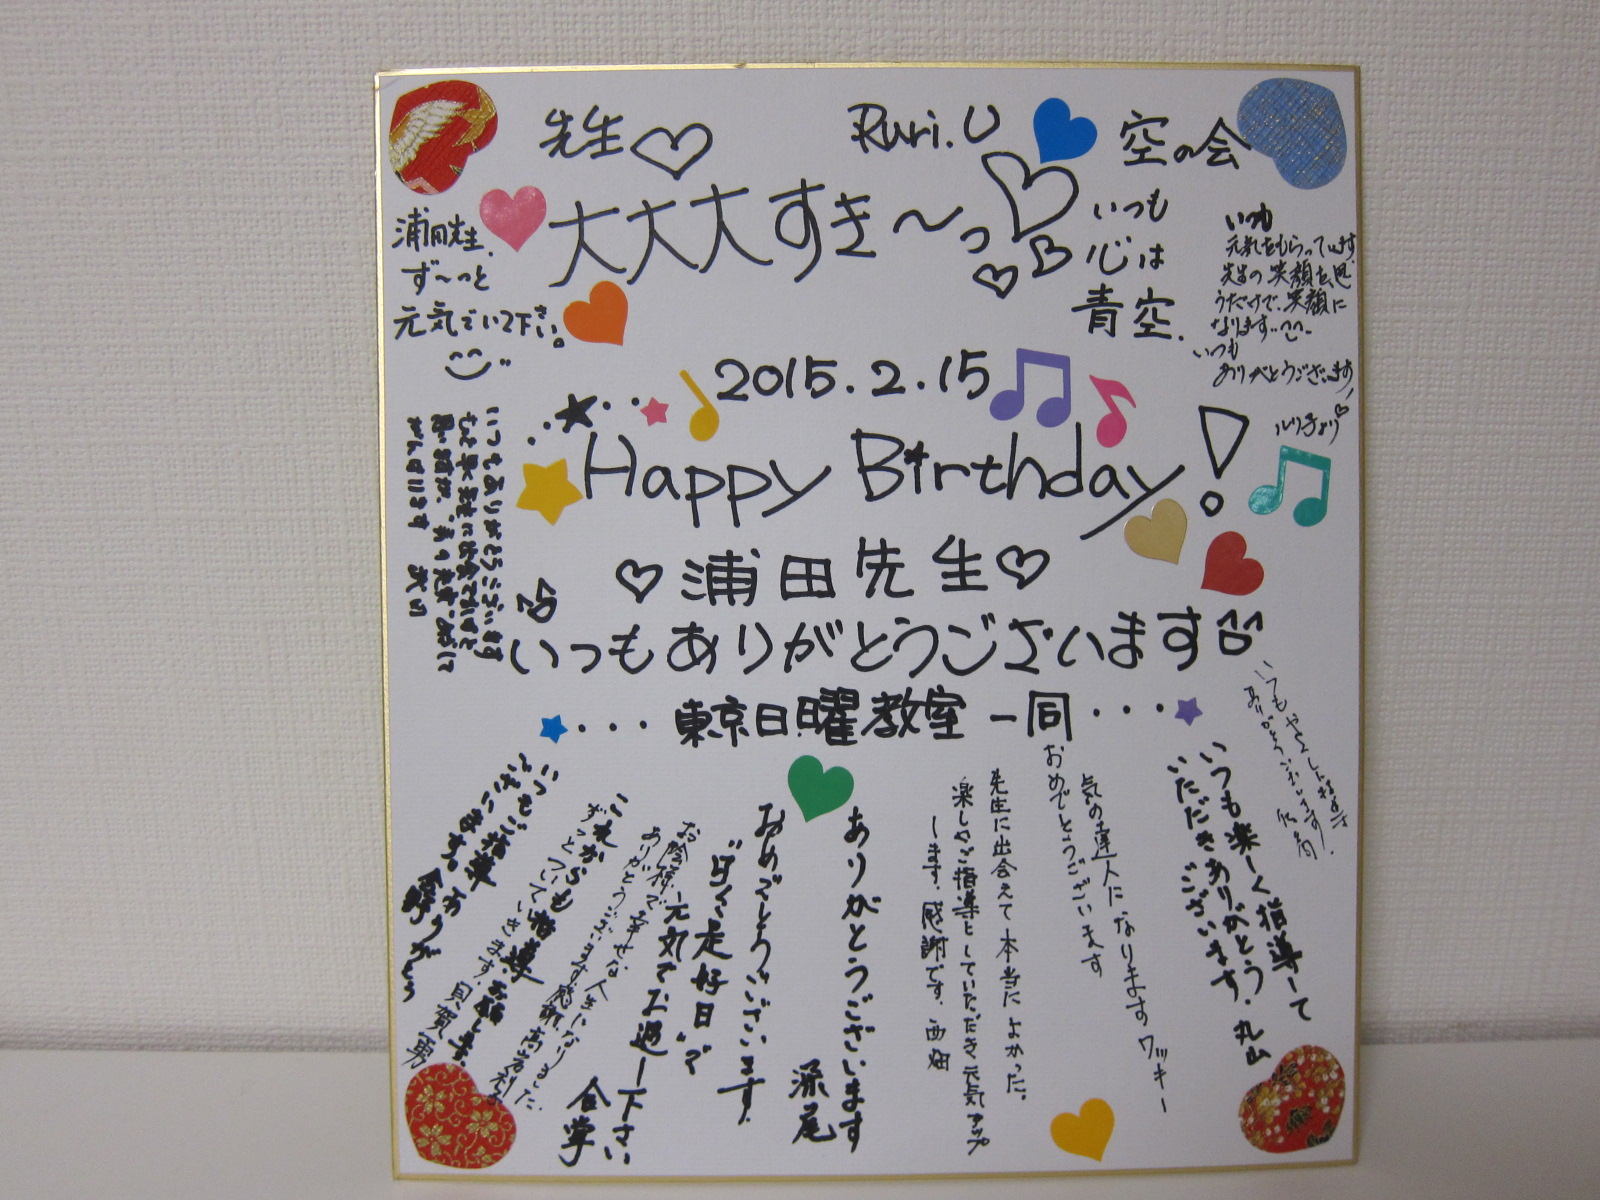 先生♡
Ruri.U
空の会
大大大すき〜っ♡
浦田先生.
ず〜っと
元気でいて下さい。
いつも
心は
青空.
いつも
元気をもらっています
先生の笑顔を思
うだけで、笑顔に
なります
いつも
ありがとうございます
ルリ子より
2015.2.15
Happy Birthday!
♡浦田先生♡
いつもありがとうございます
東京日曜教室 一同
いつもありがとうございます
いつも楽しく指導して
いただきありがとう
ございます。丸山
いつもやさしい
ありがとうございます
気の達人になります ワッキー
おめでとうございます
先生に出会えて本当によかった。
楽しくご指導していただき元気アップ
します。感謝です。西畑
ありがとうございます
深尾
おめでとうございます。
"ぼくく走好日"で
元気でお過し下さい
お陰様で幸せな人生になりました。
ありがとうございます 感謝 高岩
これからも指導お願します。
ずっとついていきます。貝賀勇
いつもご指導
ございます。ありがとう